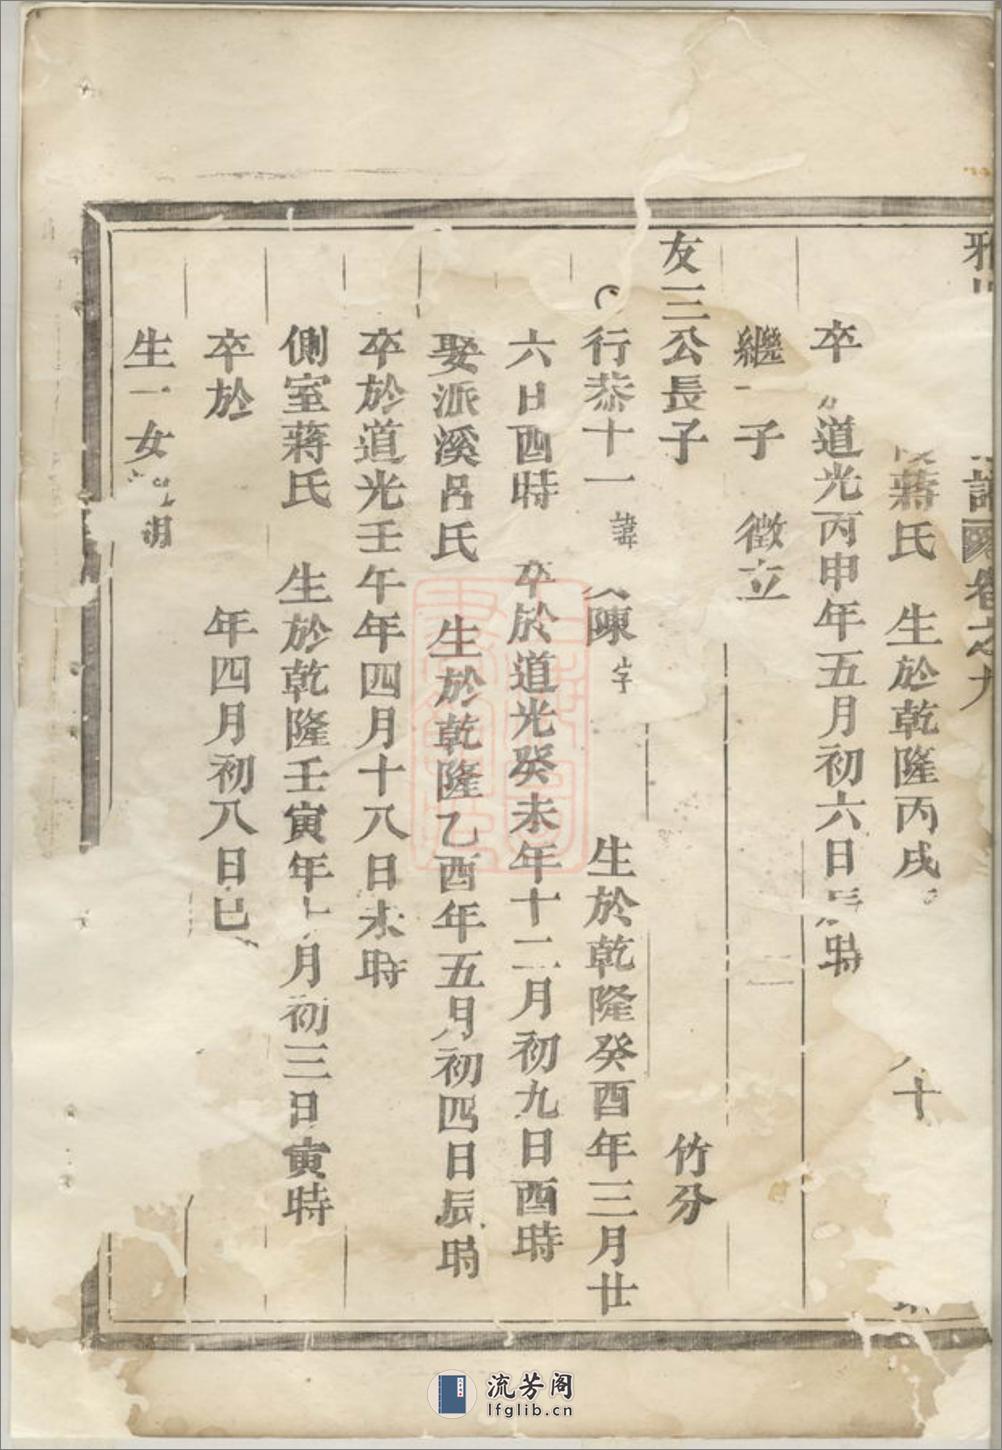 譜 卷之九
蔣氏 生於乾隆丙戌 十
卒 道光丙申年五月初六日辰時
繼 子 徵立
友三公長子 竹分
行恭十一 諱 陳 字 生於乾隆癸酉年三月廿
六日酉時 卒於道光癸未年十二月初九日酉時
娶派溪呂氏 生於乾隆乙酉年五月初四日辰時
卒於道光壬午年四月十八日未時
側室蔣氏 生於乾隆壬寅年 月初三日寅時
卒於 年四月初八日巳
生一女
流芳阁
lfglib.cn